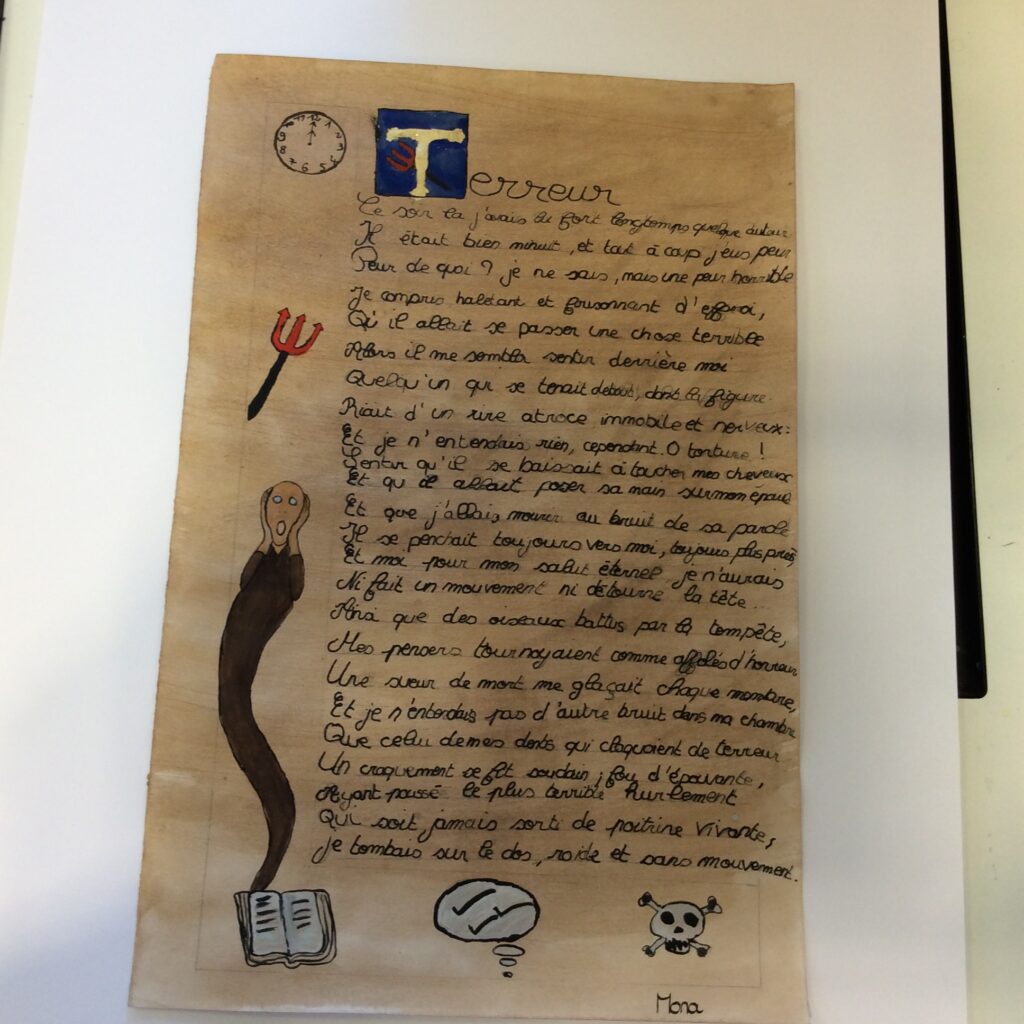 12 1 2 3 4 5 6 7 8 9 11
Terreur
Ce soir la j'avais lu fort longtemps quelque auteur
Il était bien minuit, et tout à coup j'eus peur
Peur de quoi ? je ne sais, mais une peur horrible
Je compris haletant et frisonnant d'effroi,
Qu'il allait se passer une chose terrible
Alors il me sembla sentir derrière moi
Quelqu'un qui se tenait debout, dont la figure.
Riait d'un rire atroce immobile et nerveux:
Et je n'entendais rien, cependant. O torture !
Sentir qu'il se baissait à toucher mes cheveux
Et qu il allait poser sa main sur mon épaul
Et que j'allais mourir au bruit de sa parole
Il se penchait toujours vers moi, toujours plus près,
Et moi pour mon salut éternel je n'aurais
Ni fait un mouvement ni détourné la tête
Ainsi que des oiseaux battus par la tempête,
Mes pensers tournoyaient comme affolés d'horreur
Une sueur de mort me glaçait chaque membre,
Et je n'entendais pas d'autre bruit dans ma chambre
Que celui de mes dents qui claquaient de terreur
Un craquement se fit soudain ; fou d'épouvante,
Ayant poussé le plus terrible hurlement
Qui soit jamais sorti de poitrine vivante,
je tombais sur le dos, roide et sans mouvement.
Mona